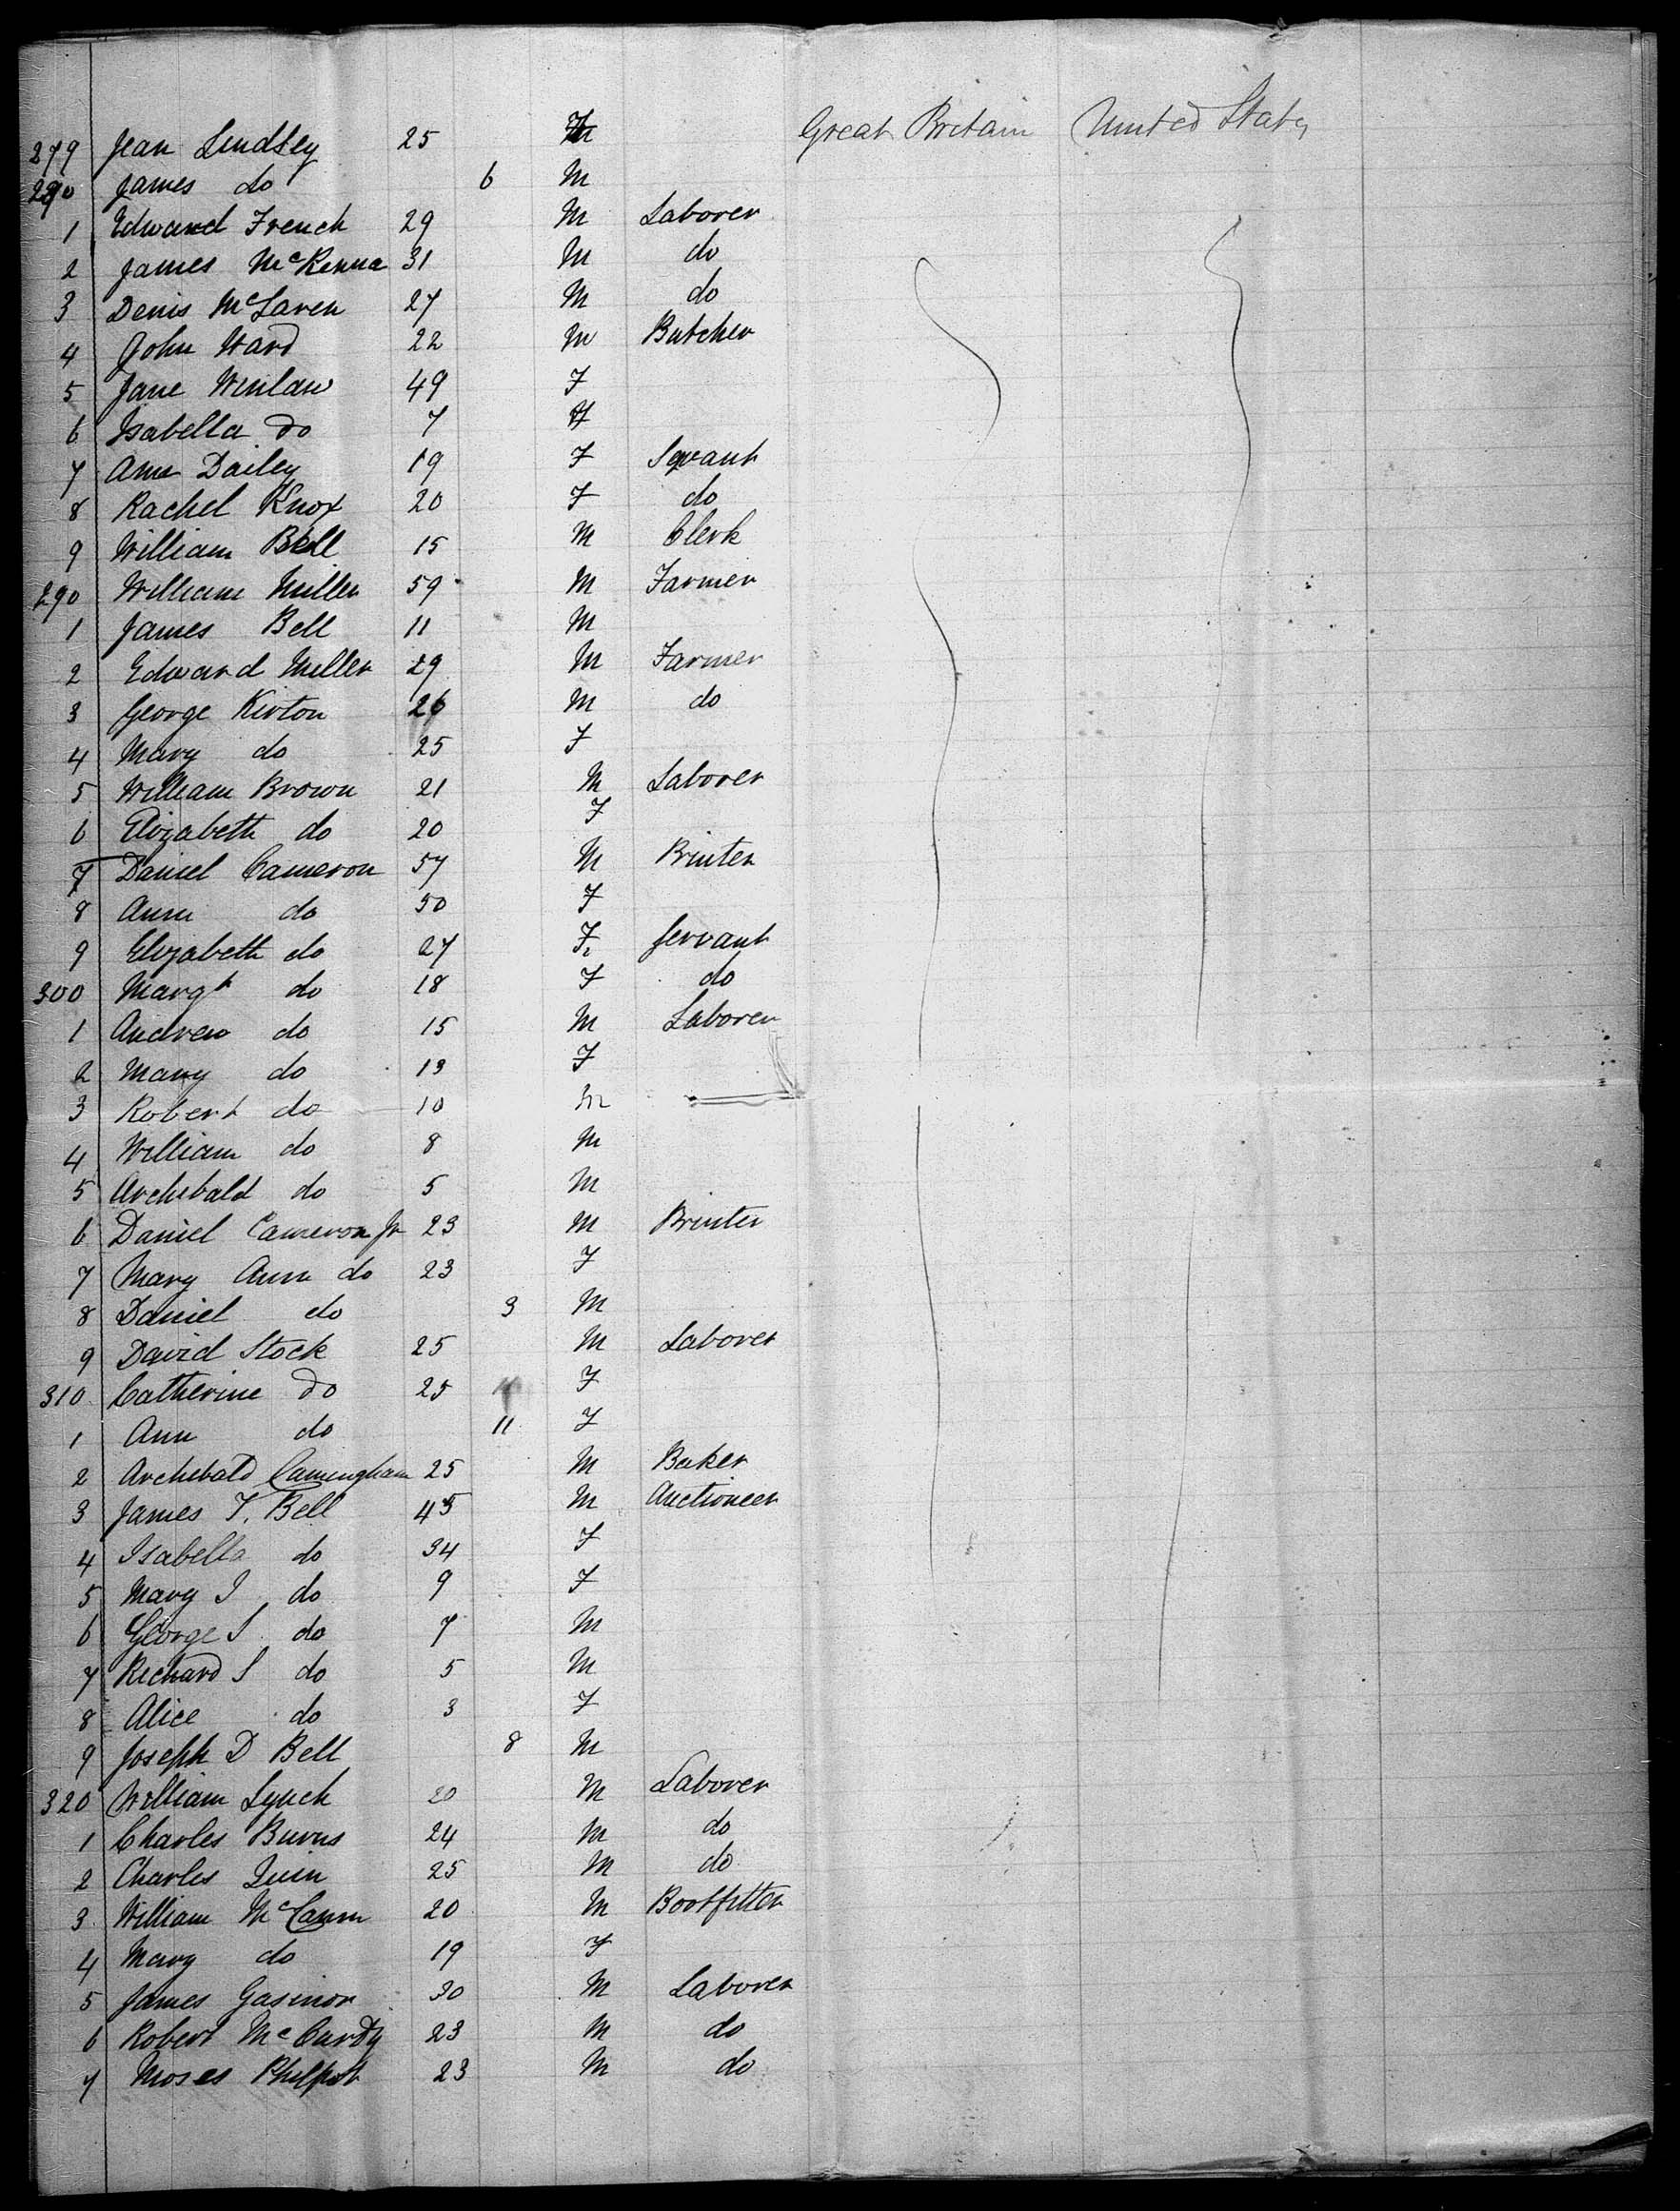 279 Jean Lindsey 25 F Great Britain United States
280 James do 6 M
1 Edward French 29 M Laborer
2 James McKenna 31 M do
3 Denis McLaren 27 M do
4 John Ward 22 M Butcher
5 Jane Winlaw 49 F
6 Isabella do 7 F
7 Ann Dailey 19 F Servant
8 Rachel Knox 20 F do
9 William Bell 15 M Clerk
290 William Miller 59 M Farmer
1 James Bell 11 M
2 Edward Miller 29 M Farmer
3 George Kirton 26 M do
4 Mary do 25 F
5 William Brown 21 M Laborer
6 Elizabeth do 20 F
7 Daniel Cameron 57 M Printer
8 Ann do 50 F
9 Elizabeth do 27 F Servant
300 Margt do 18 F do
1 Andrew do 15 M Laborer
2 Mary do 13 F
3 Robert do 10 M
4 William do 8 M
5 Archibald do 5 M
6 Daniel Cameron Jr 23 M Printer
7 Mary Ann do 23 F
8 Daniel do 3 M
9 David Stock 25 M Laborer
310 Catherine do 25 F
1 Ann do 11 F
2 Archibald 25 M Baker
3 James T. Bell 45 M Auctioneer
4 Isabella do 34 F
5 Mary I do 9 F
6 George S do 7 M
7 Richard S do 5 M
8 Alice do 3 F
9 Joseph D Bell 8 M
320 William Lynch 20 M Laborer
1 Charles Burns 24 M do
2 Charles Quin 25 M do
3 William McCann 20 M Bootfitter
4 Mary do 19 F
5 James Gasinor 30 M Laborer
6 Robert McCurdy 23 M do
7 Moses Philpot 23 M do